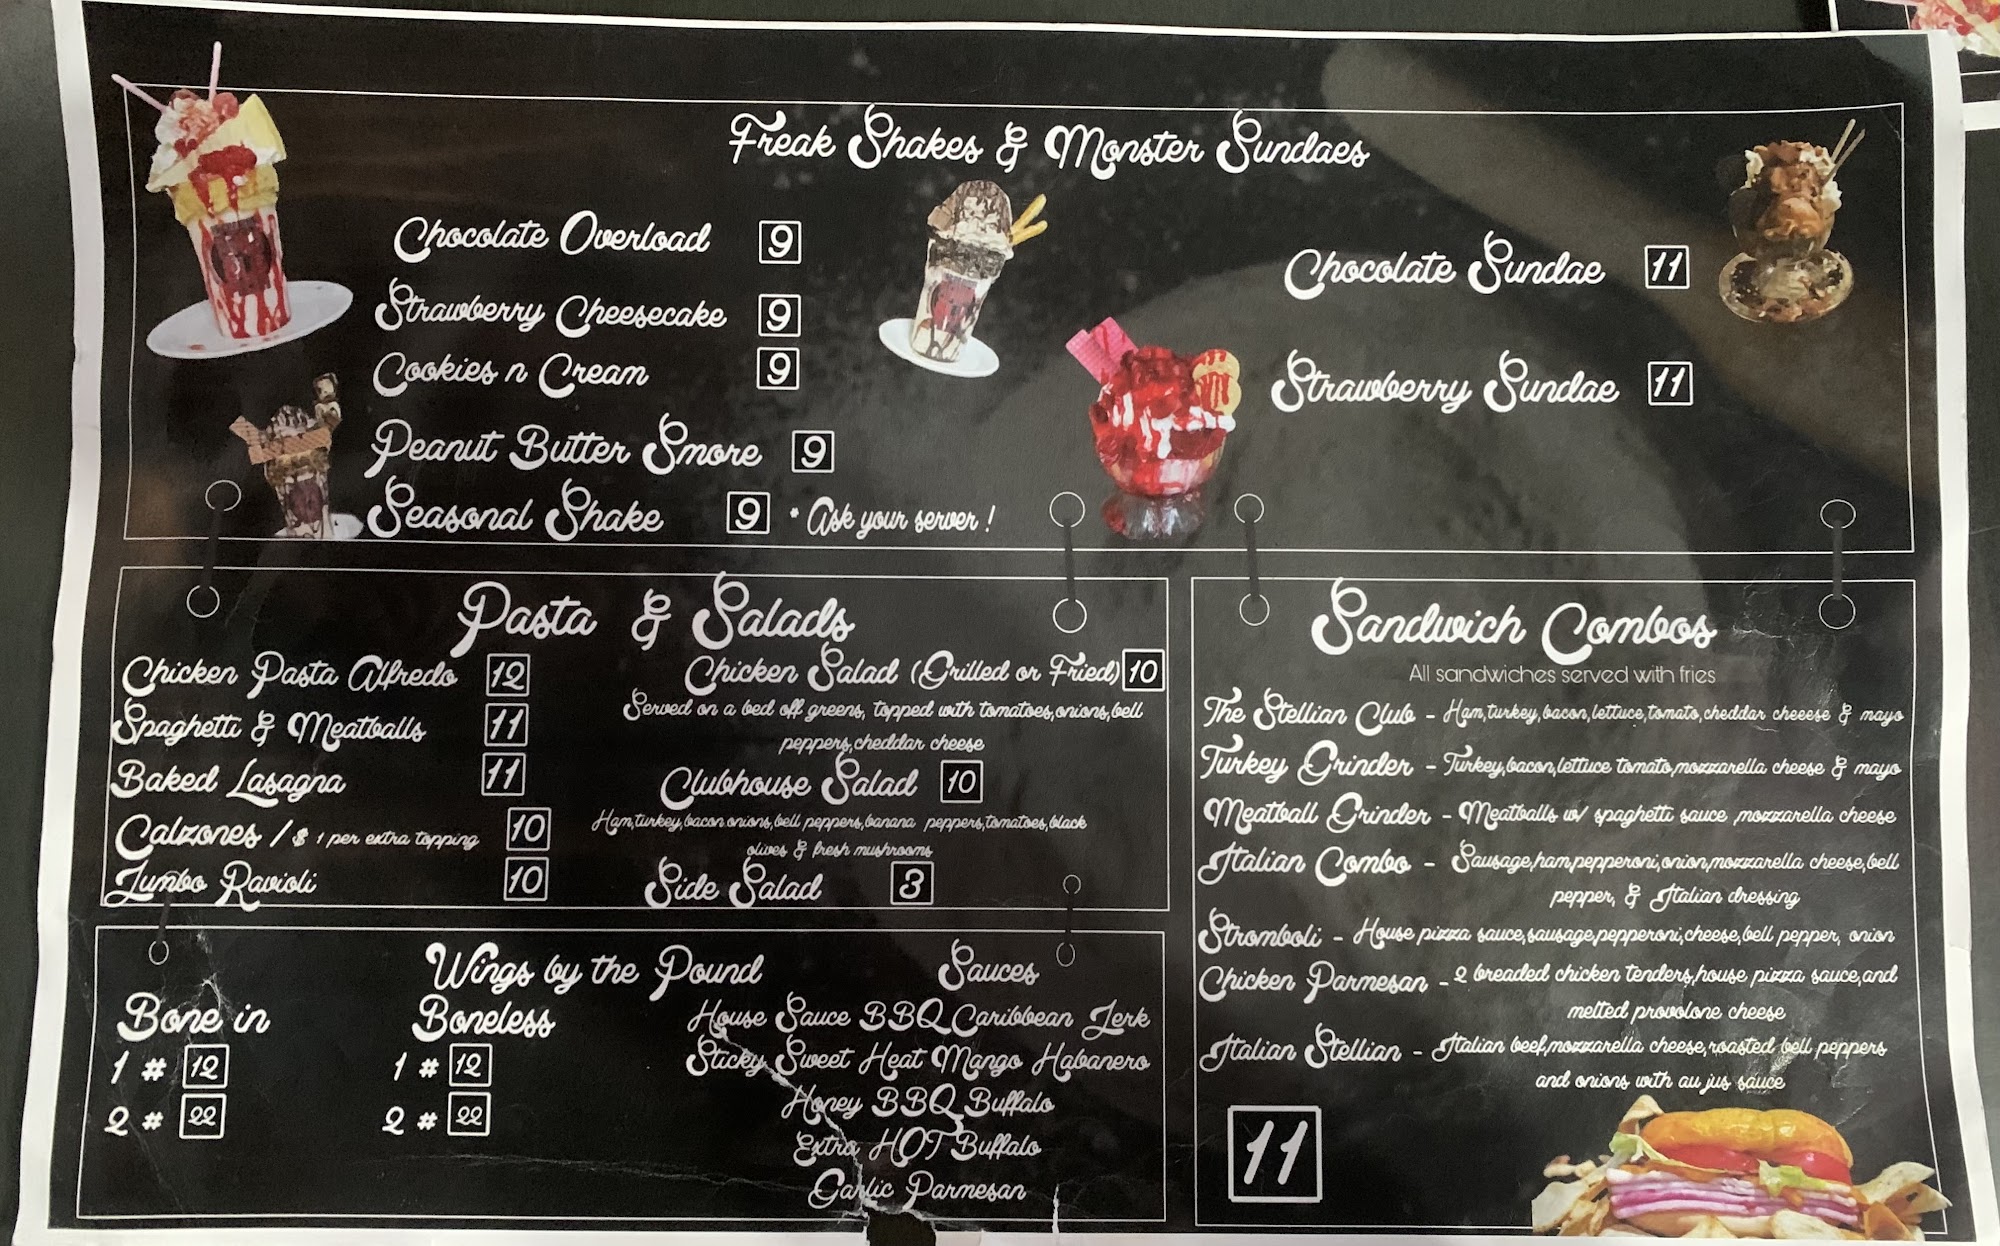 Freak Shakes & Monster Sundaes
Chocolate Overload 9
Strawberry Cheesecake 9
Cookies n Cream 9
Peanut Butter Smore 9
Seasonal Shake 9 * Ask your server !
Chocolate Sundae 11
Strawberry Sundae 11
Pasta & Salads
Chicken Pasta Alfredo 12
Spaghetti & Meatballs 11
Baked Lasagna 11
Calzones / $ 1 per extra topping 10
Jumbo Ravioli 10
Chicken Salad (Grilled or Fried) 10
Served on a bed off greens, topped with tomatoes,onions,bell
peppers,cheddar cheese
Clubhouse Salad 10
Ham,turkey,bacon,onions,bell peppers,banana peppers,tomatoes,black
olives & fresh mushrooms
Side Salad 3
Wings by the Pound
Bone in
1 # 12
2 # 22
Boneless
1 # 12
2 # 22
Sauces
House Sauce BBQ Caribbean Jerk
Sticky Sweet Heat Mango Habanero
Honey BBQ Buffalo
Extra HOT Buffalo
Garlic Parmesan
Sandwich Combos
All sandwiches served with fries
The Stellian Club - Ham,turkey,bacon,lettuce,tomato,cheddar cheeese & mayo
Turkey Grinder - Turkey,bacon,lettuce tomato,mozzarella cheese & mayo
Meatball Grinder - Meatballs w/ spaghetti sauce ,mozzarella cheese
Italian Combo - Sausage,ham,pepperoni,onion,mozzarella cheese,bell
pepper, & Italian dressing
Stromboli - House pizza sauce,sausage,pepperoni,cheese,bell pepper, onion
Chicken Parmesan - 2 breaded chicken tenders,house pizza sauce,and
melted provolone cheese
Italian Stellian - Italian beef,mozzarella cheese,roasted bell peppers
and onions with au jus sauce
11